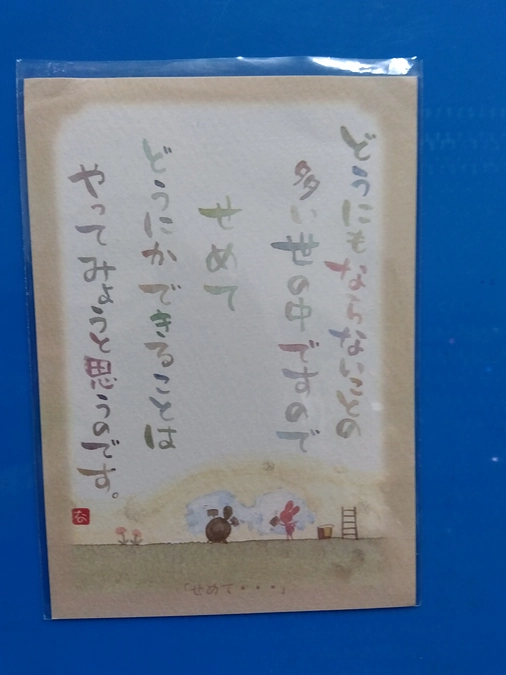 どうにもならないことの
多い世の中ですので
せめて
どうにかできることは
やってみようと思うのです。
「せめて・・・」